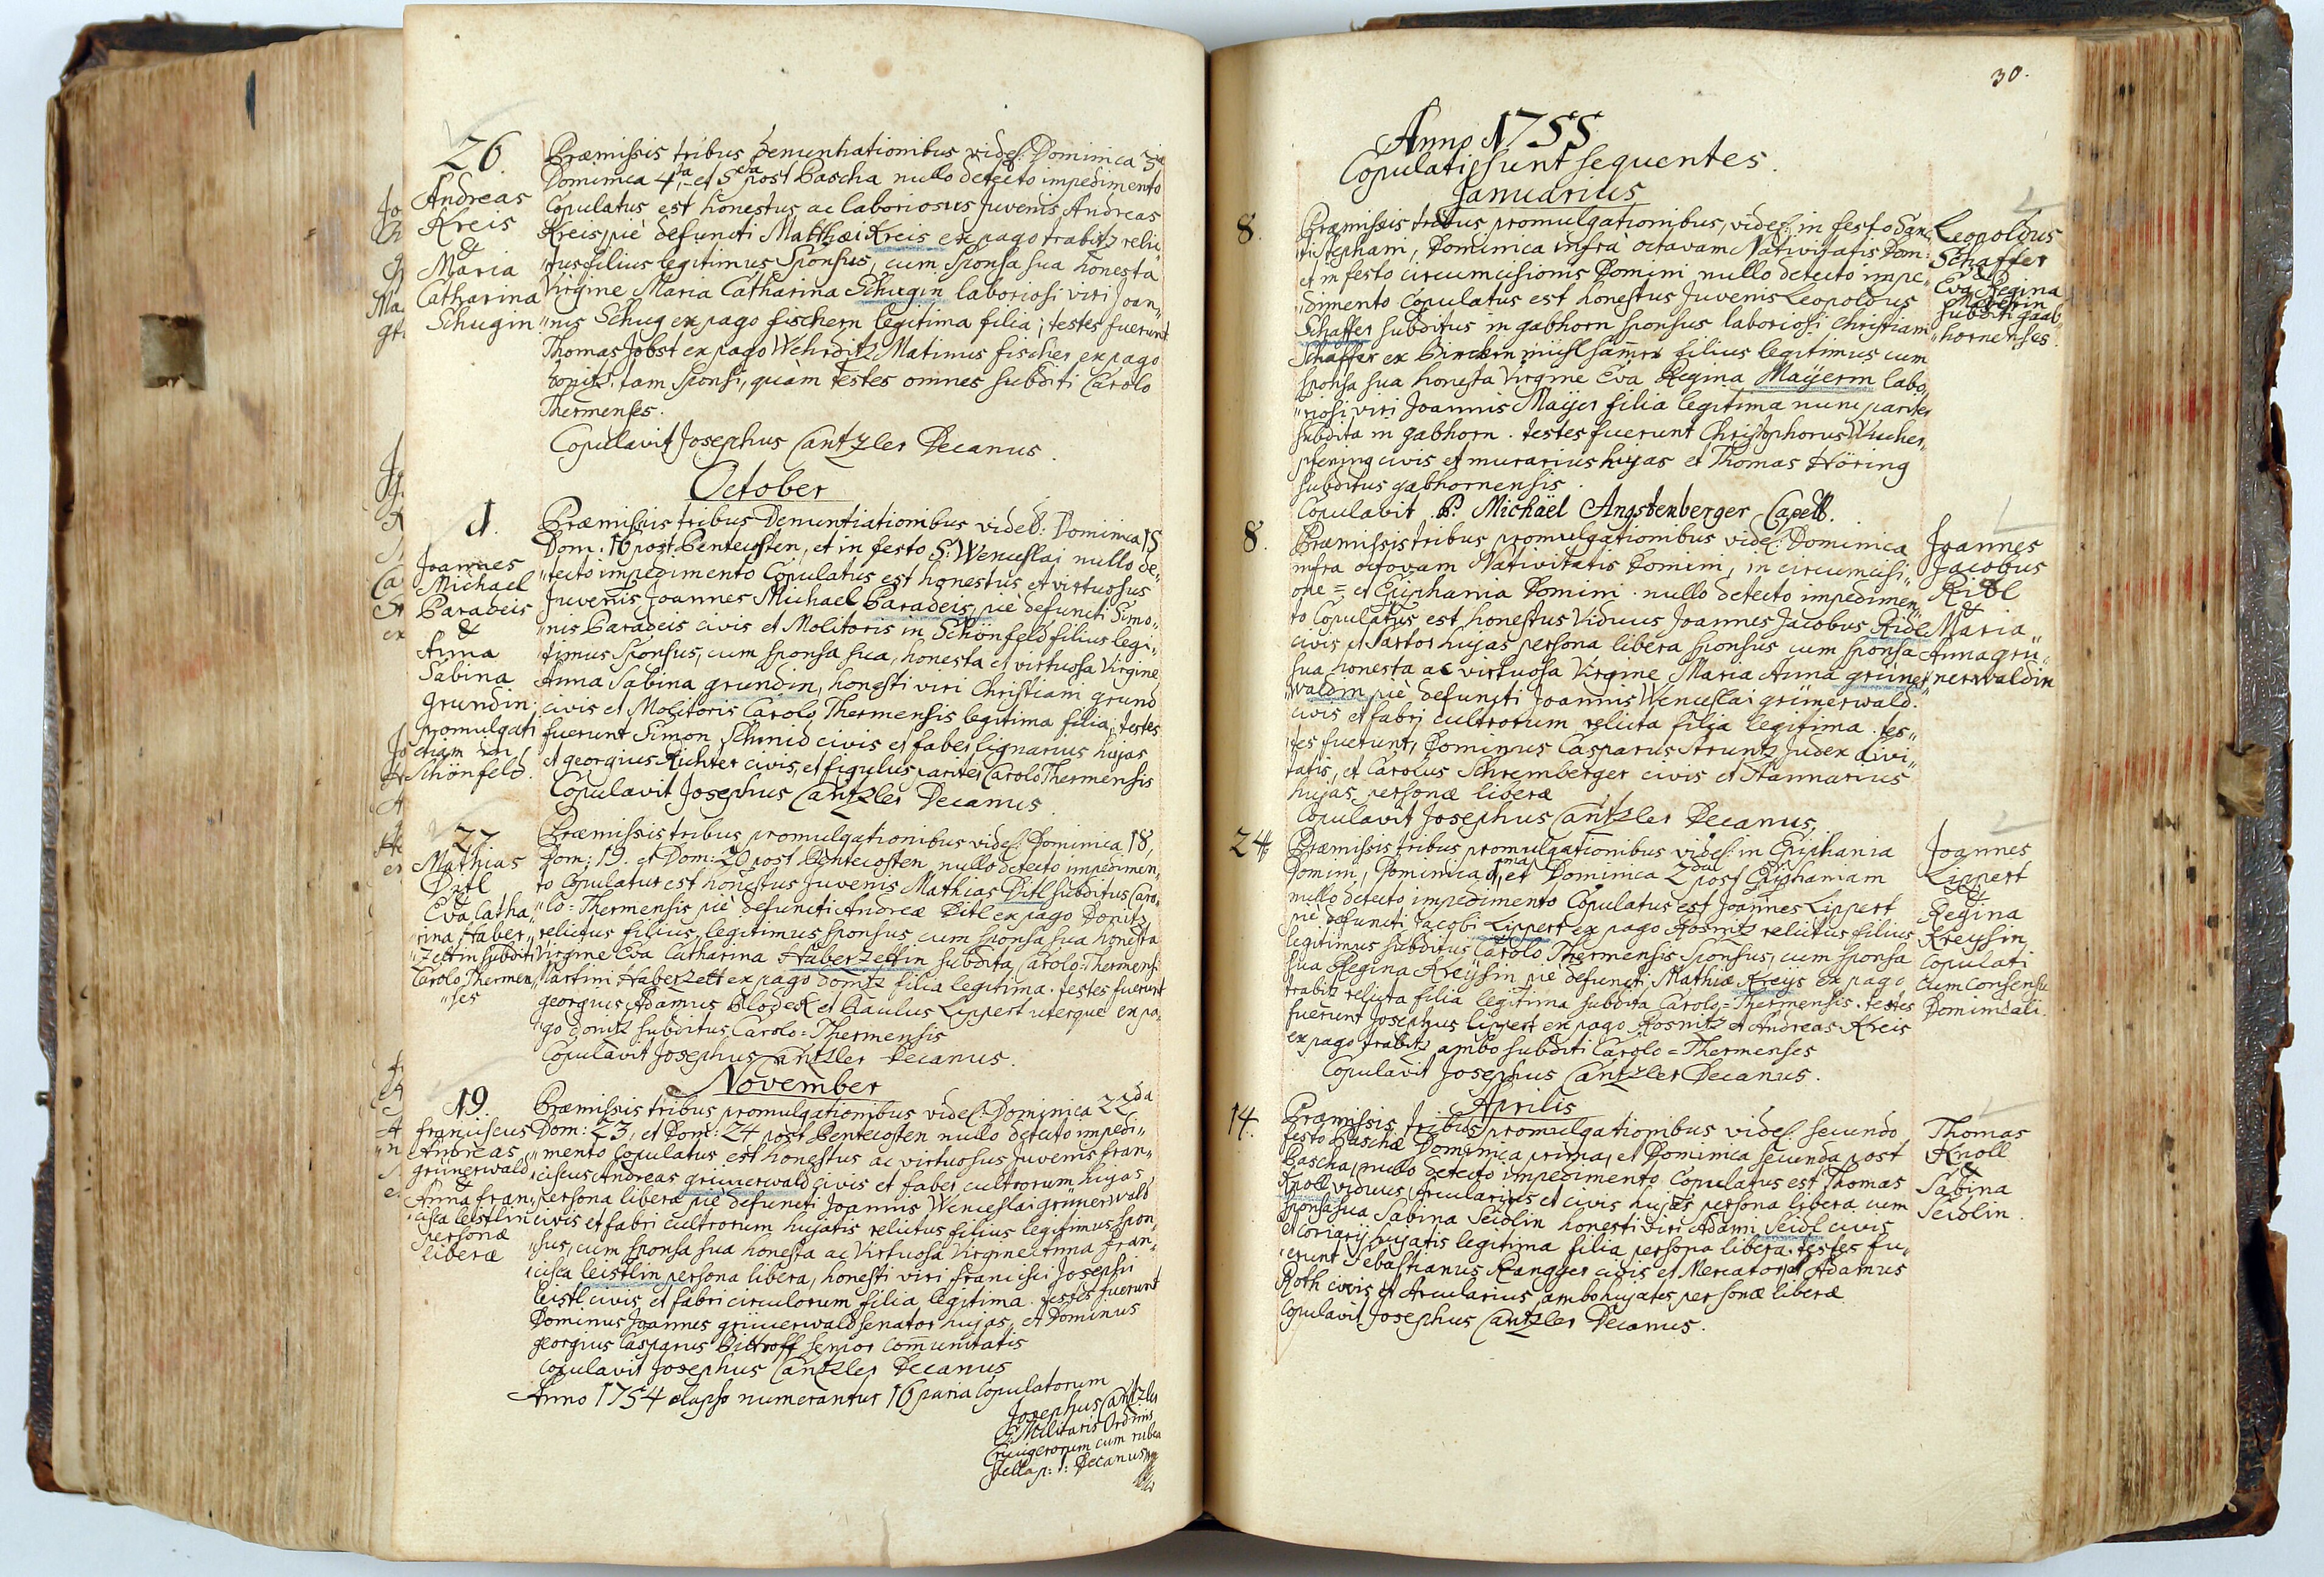 26.
Andreas
Kreis
&
Maria
Catharina
Schugin
Præmissis tribus Denuntiationibus videl: Dominica 3ia
Dominica 4ta, et 5ta post Pascha nullo detecto impedimento
Copulatus est honestus ac laboriosus Juvenis Andreas
Kreis, piè defuncti Matthæi Kreis ex pago trabitz relic„
„tus filius legitimus Sponsus, cum sponsa sua honesta
Virgine Maria Catharina Schugin laboriosi viri Joan„
„nis Schug ex pago fischern legitima filia; testes fuerunt
Thomas Jobst ex pago Wehrditz Matinus fischer ex pago
donitz. tam sponsi, quàm testes omnes subditi Carolo
Thermenses.
Copulavit Josephus Cantzler Decanus.
October
1.
Joannes
Michael
Paradeis
&
Anna
Sabina
Grundin
promulgati
etiam in
Schönfeld.
Præmissis tribus Denuntiationibus videl: Dominica 15
Dom: 16 post Pentecosten, et in festo S: Wenceslai nullo de„
„tecto impedimento Copulatus est honestus et virtuosus
Juvenis Joannes Michael Paradeis, piè defuncti Simo„
„nis Paradeis civis et Molitoris in Schönfeld filius legi„
„timus Sponsus, cum sponsa sua, honesta et virtuosa Virgine
Anna Sabina grundin, honesti viri Christiani grund
civis et Molitoris Carolo Thermensis legitima filia; testes
fuerunt Simon Schmid civis et faber lignarius hujas
et georgius Richter civis, et figulus pariter Carolo Thermensis
Copulavit Josephus Cantzler Decanus.
27
Mathias
Ditl
&
Eva Catha„
„rina Haber„
„zettin subditi
Carolo Thermen„
„ses
Præmissis tribus promulgationibus videl: Dominica 18,
Dom: 19. et Dom: 20 post Pentecosten nullo detecto impedimen„
to Copulatus est honestus Juvenis Mathias Ditl subditus Caro„
„lo=Thermensis piè defuncti Andreæ Ditl ex pago Donitz
relictus filius, legitimus sponsus cum sponsa sua honesta
Virgine Eva Catharina Haberzettin subdita Carolo=Thermensi
Martini Haberzett ex pago donitz filia legitima. testes fuerunt
georgius Adamus Blodek et Paulus Lippert uterque ex pa„
„go donitz subditus Carolo=Thermensis
Copulavit Josephus Cantzler Decanus.
November
19.
franciscus
Andreas
grünerwald
&
Anna fran„
„cisca leistlin
personæ
liberæ
Præmissis tribus promulgationibus videl: Dominica 22da
Dom: 23, et Dom: 24 post Pentecosten nullo detecto impedi„
„mento Copulatus est honestus ac virtuosus Juvenis fran„
„ciscus Andreas grünerwald civis et faber cultrorum hujas
persona liberæ piè defuncti Joannis Wenceslai grünerwald
civis et fabri cultrorum hujatis relictus filius legitimus spon„
„sus, cum sponsa sua honesta ac Virtuosa Virgine Anna fran„
„cisca leistlin persona libera, honesti viri francisci Josephi
leistl civis et fabri circulorum filia legitima. testes fuerunt
Dominus Joannes grünerwald senator hujas, et Dominus
georgius Casparus Bittroff senior com̄unitatis
Copulavit Josephus Cantzler Decanus
Anno 1754 elapso numerantur 16 paria Copulatorum
Josephus Cantzler
S: Militaris Ordinis
Crucigerorum cum rubea
stella p: t: Decanus
30.
Anno 1755
Copulati sunt sequentes.
Januarius
8.
Præmissis tribus promulgationibus, videl: in festo Sanc„
ti Stephani, Dominica infra octavam Nativitatis Dom:
et in festo circumcisionis Domini nullo detecto impe„
„dimento Copulatus est honestus Juvenis Leopoldus
Schaffer subditus in gabhorn sponsus laboriosi Christiani
Schaffer ex Bircken müehlham̄er filius legitimus cum
sponsa sua honesta Virgine Eva Regina Maÿerin labo„
„riosi viri Joannis Maÿer filia legitima nunc pariter
subdita in gabhorn. testes fuerunt Christophorus Wucher„
pfening civis et murarius hujas et Thomas Höring
subditus gabhornensis.
Copulavit P. Michaël Angstenberger Capell.
Leopoldus
Schaffer
&
Eva Regina
Maÿerin
subditi gaab„
„hornenses.
8.
Præmissis tribus promulgationibus videl: Dominica
infra octavam Nativitatis Domini, in circumcisi„
one = et Epiphania Domini. nullo detecto impedimen„
to Copulatus est honestus Viduus Joannes Jacobus Ridl
civis et Sartor hujas persona libera sponsus cum sponsa
sua honesta ac virtuosa Virgine Maria Anna grüner„
„waldin piè defuncti Joannis Wenceslai grünerwald.
civis et fabri cultrorum relicta filia legitima. tes„
„tes fuerunt, Dominus Casparus Struntz Judex Civi„
„tatis, et Carolus Schremberger civis et Stannarius
hujas personæ liberæ
Copulavit Josephus Cantzler Decanus,
Joannes
Jacobus
Ridl
&
Maria„
Anna grü„
nerwaldin
24.
Præmissis tribus promulgationibus videl: in Epiphania
Domini, Dominica 1ma, et Dominica 2da post Epiphaniam
nullo detecto impedimento Copulatus est Joannes Lippert
piè defuncti Jacobi Lippert ex pago Rosnitz relictus filius
legitimus subditus Carolo Thermensis Sponsus, cum sponsa
sua Regina Kreÿsin piè defuncti Mathiæ Kreÿs ex pago
trabitz relicta filia legitima subdita Carolo=Thermensis. testes
fuerunt Josephus lippert ex pago Rosnitz et Andreas Kreis
ex pago trabitz ambo subditi Carolo=Thermenses
Copulavit Josephus Cantzler Decanus.
Joannes
Lippert
&
Regina
Kreysin
Copulati
cum consensu
Dominicali.
Aprilis
14.
Præmissis tribus promulgationibus videl: secundo
festo Paschæ Dominica prima, et Dominica secunda post
Pascha, nullo detecto impedimento Copulatus est Thomas
Knoll viduus, Arcularius et civis hujas persona libera cum
sponsa sua Sabina Seidlin honesti viri Adami Seidl civis
et coriarij hujatis legitima filia persona libera. testes fu„
„erunt Sebastianus Rangger civis et Mercator, et Adamus
Roth civis et Arcularius, ambo hujates personæ liberæ.
Copulavit Josephus Cantzler Decanus.
Thomas
Knoll
&
Sabina
Seidlin